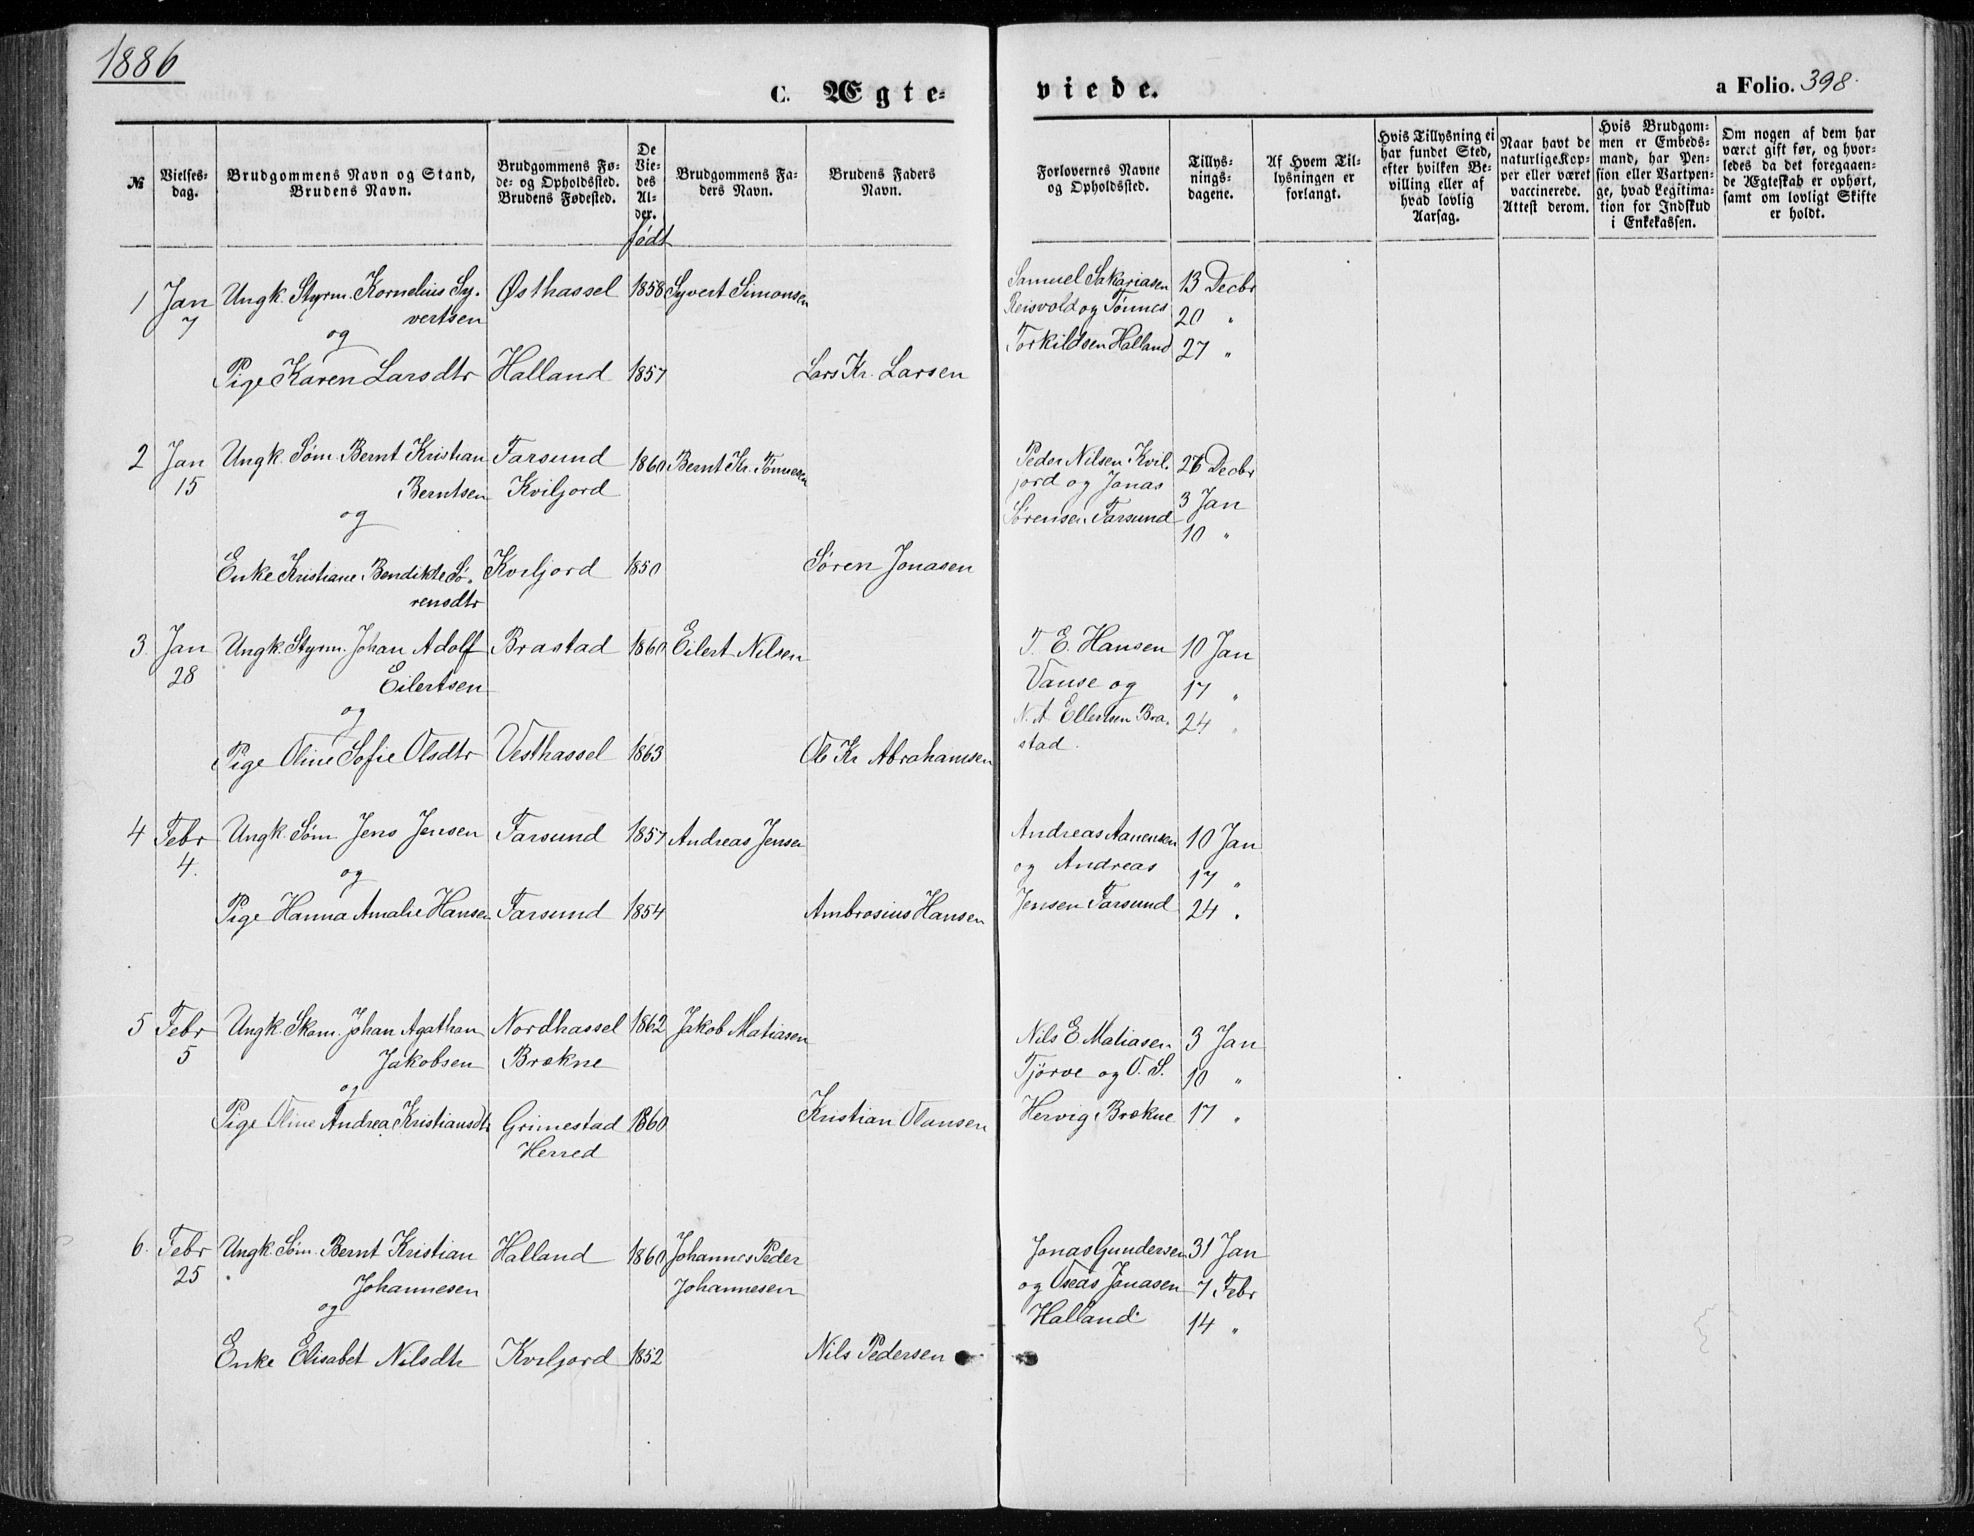 1886
C. Ægte-
viede.
a Folio. 398.
№
Vielses-
dag.
Brudgommens Navn og Stand,
Brudens Navn.
Brudgommens Fø-
de- og Opholdssted.
Brudens Fødested.
De
Vie-
des
Al-
der.
født
Brudgommens Fa-
ders Navn.
Brudens Faders
Navn.
Forlovernes Navne
og Opholdssted.
Tillys-
nings-
dagene.
Af Hvem Til-
lysningen er
forlangt.
Hvis Tillysning ei
har fundet Sted,
efter hvilken Be-
villing eller af
hvad lovlig
Aarsag.
Naar havt de
naturlige Kop-
per eller været
vaccinerede.
Attest derom.
Hvis Brudgom-
men er Embeds-
mand, har Pen-
sion eller Vartpen-
ge, hvad Legitima-
tion for Indskud
i Enkekassen.
Om nogen af dem har
været gift før, og hvor-
ledes da det foregaaen-
de Ægteskab er ophørt,
samt om lovligt Skifte
er holdt.
1 Jan Ungk. Styrm. Kornelius Sy- Østhassel 1858 Syvert Simonsen Samuel Sakariasen 13 Decbr
7 vertsen Reisvold og Tønnes 20 "
og Torkildsen Halland 27 "
Pige Karen Larsdtr Halland 1857 Lars Kr. Larsen
2 Jan Ungk. Søm. Bernt Kristian Farsund 1860 Bernt Kr. Tønnesen Peder Nilsen Kvil- 26 Decbr
15 Berntsen Kviljord jord og Jonas 3 Jan
og Sørensen Farsund 10 "
Enke Kristiane Bendikte Sø- Kviljord 1850 Søren Jonasen
rensdtr
3. Jan Ungk. Styrm. Johan Adolf Brastad 1860 Eilert Nilsen T. E. Hansen 10 Jan
28 Eilertsen Vanse og 17 "
og N. A. Ellertsen Bra- 24 "
Pige Oline Sofie Olsdtr Vesthassel 1863 Ole Kr Abrahamsen stad.
4 Febr Ungk. Søm. Jens Jensen Farsund 1857 Andreas Jensen Andreas Aanensen 10 Jan
4. og og Andreas 17 "
Pige Hanna Amalie Hansen Farsund 1854 Ambrosius Hansen Jensen Farsund 24 "
5 Febr Ungk. Skom. Johan Agathan Nordhassel 1862 Jakob Matiasen Nils E Matiasen 3 Jan
5 Jakobsen Brekne Tjørve og O. S. 10 "
og
Pige Oline Andrea Kristiansdtr Grimestad 1860 Kristian Olansen Hervig Brekne 17 "
Herred
6. Febr Ungk. Søm. Bernt Kristian Halland 1860 Johannes Peder Jonas Gundersen 31 Jan
25 Johannesen Johannesen og Oseas Jonasen 7 Febr
og Halland 14 "
Enke Elisabet Nilsdtr Kviljord 1852 Nils Pedersen